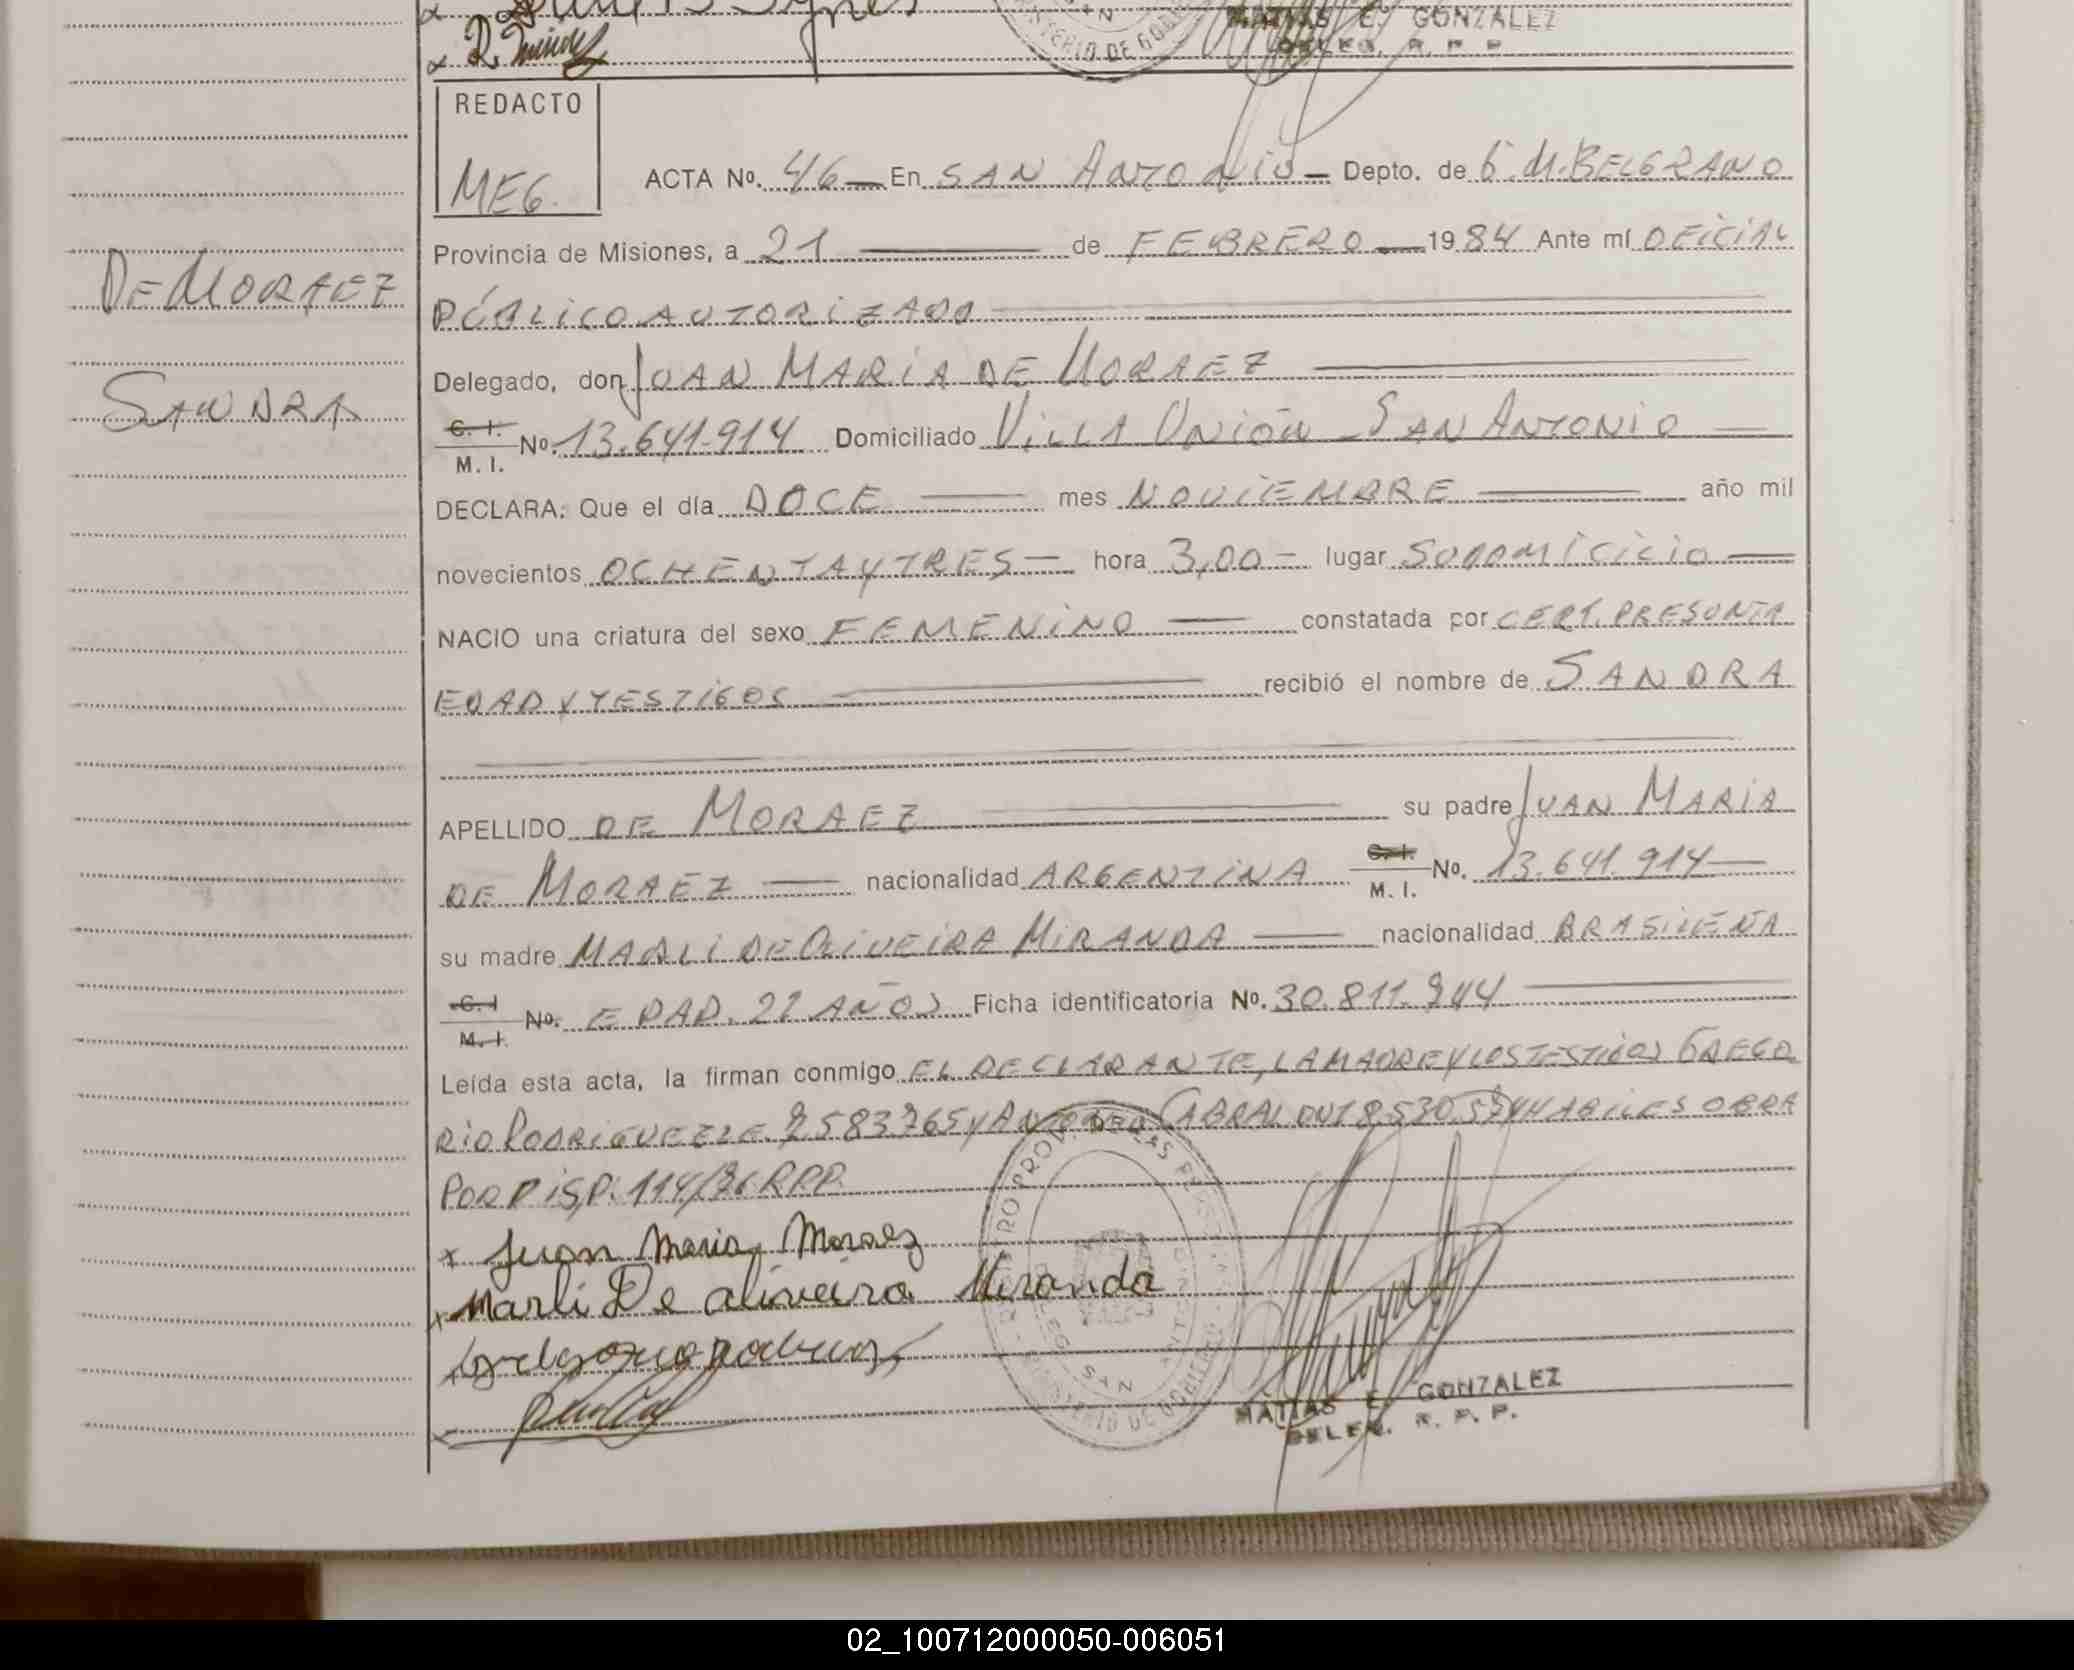 MATIAS E. GONZALEZ
DELEG. R. P. P.
REDACTO
MEG.
ACTA No. 46 — En SAN ANTONIO — Depto. de G. M. BELGRANO
Provincia de Misiones, a 21 — de FEBRERO — 1984 Ante mí OFICIAL
PÚBLICO AUTORIZADO
DE MORAEZ
Delegado, don JUAN MARIA DE MORAEZ
SANDRA
C. I.
M. I. No. 13.641.914 Domiciliado VILLA UNIÓN - SAN ANTONIO —
DECLARA: Que el día DOCE — mes NOVIEMBRE — año mil
novecientos OCHENTA Y TRES — hora 3,00 — lugar SU DOMICICIO —
NACIO una criatura del sexo FEMENINO — constatada por CERT. PRESUNTA
EDAD Y TESTIGOS — recibió el nombre de SANDRA
APELLIDO DE MORAEZ — su padre JUAN MARIA
DE MORAEZ — nacionalidad ARGENTINA C. I. M. I. No. 13.641.914 —
su madre MARLI DE OLIVEIRA MIRANDA — nacionalidad BRASILEÑA
C. I M. I. No. EDAD. 22 AÑOS Ficha identificatoria No. 30.811.944 —
Leída esta acta, la firman conmigo EL DECLARANTE, LA MADRE Y LOS TESTIGOS GREGO
RIO RODRIGUEZ L.E. 7.583.765 Y CABRAL DNI 8.530.574 HABILES OBRA
POR DISP. 114/76 RPP.
x Juan Maria Moraez
x Marli De oliveira Miranda
MATIAS E. GONZALEZ
DELEG. R. P. P.
02_100712000050-006051